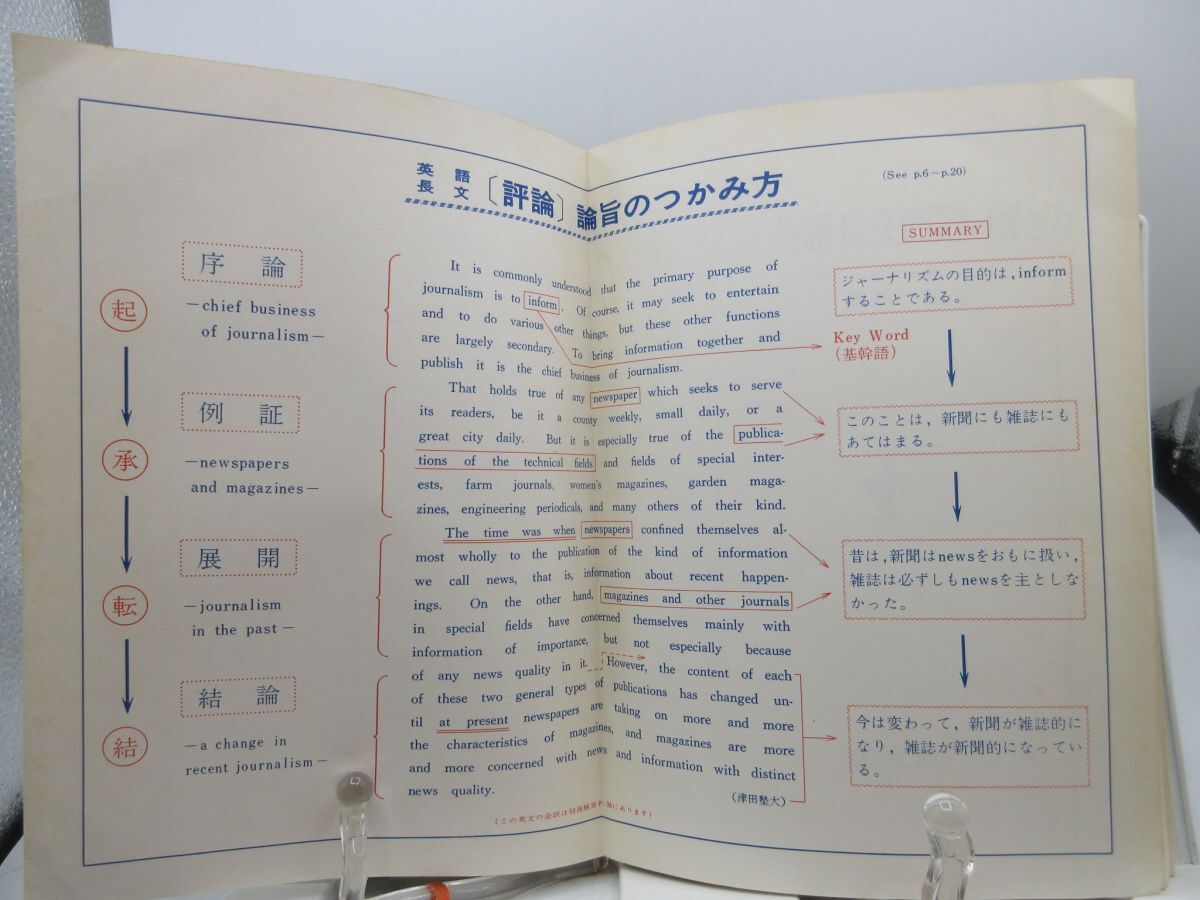 英語
長文
〔評論〕論旨のつかみ方
(See p.6～p.20)
起
序論
—chief business
of journalism—
承
例証
—newspapers
and magazines—
転
展開
—journalism
in the past—
結
結論
—a change in
recent journalism—
It is commonly understood that the primary purpose of
journalism is to inform. Of course, it may seek to entertain
and to do various other things, but these other functions
are largely secondary. To bring information together and
publish it is the chief business of journalism.
That holds true of any newspaper which seeks to serve
its readers, be it a county weekly, small daily, or a
great city daily. But it is especially true of the publica-
tions of the technical fields and fields of special inter-
ests, farm journals, women's magazines, garden maga-
zines, engineering periodicals, and many others of their kind.
The time was when newspapers confined themselves al-
most wholly to the publication of the kind of information
we call news, that is, information about recent happen-
ings. On the other hand, magazines and other journals
in special fields have concerned themselves mainly with
information of importance, but not especially because
of any news quality in it. However, the content of each
of these two general types of publications has changed un-
til at present newspapers are taking on more and more
the characteristics of magazines, and magazines are more
and more concerned with news and information with distinct
news quality.
(津田塾大)
SUMMARY
ジャーナリズムの目的は，inform
することである。
Key Word
(基幹語)
このことは，新聞にも雑誌にも
あてはまる。
昔は，新聞はnewsをおもに扱い，
雑誌は必ずしもnewsを主としな
かった。
今は変わって，新聞が雑誌的に
なり，雑誌が新聞的になってい
る。
(この英文の全訳は別冊解答
にあります)